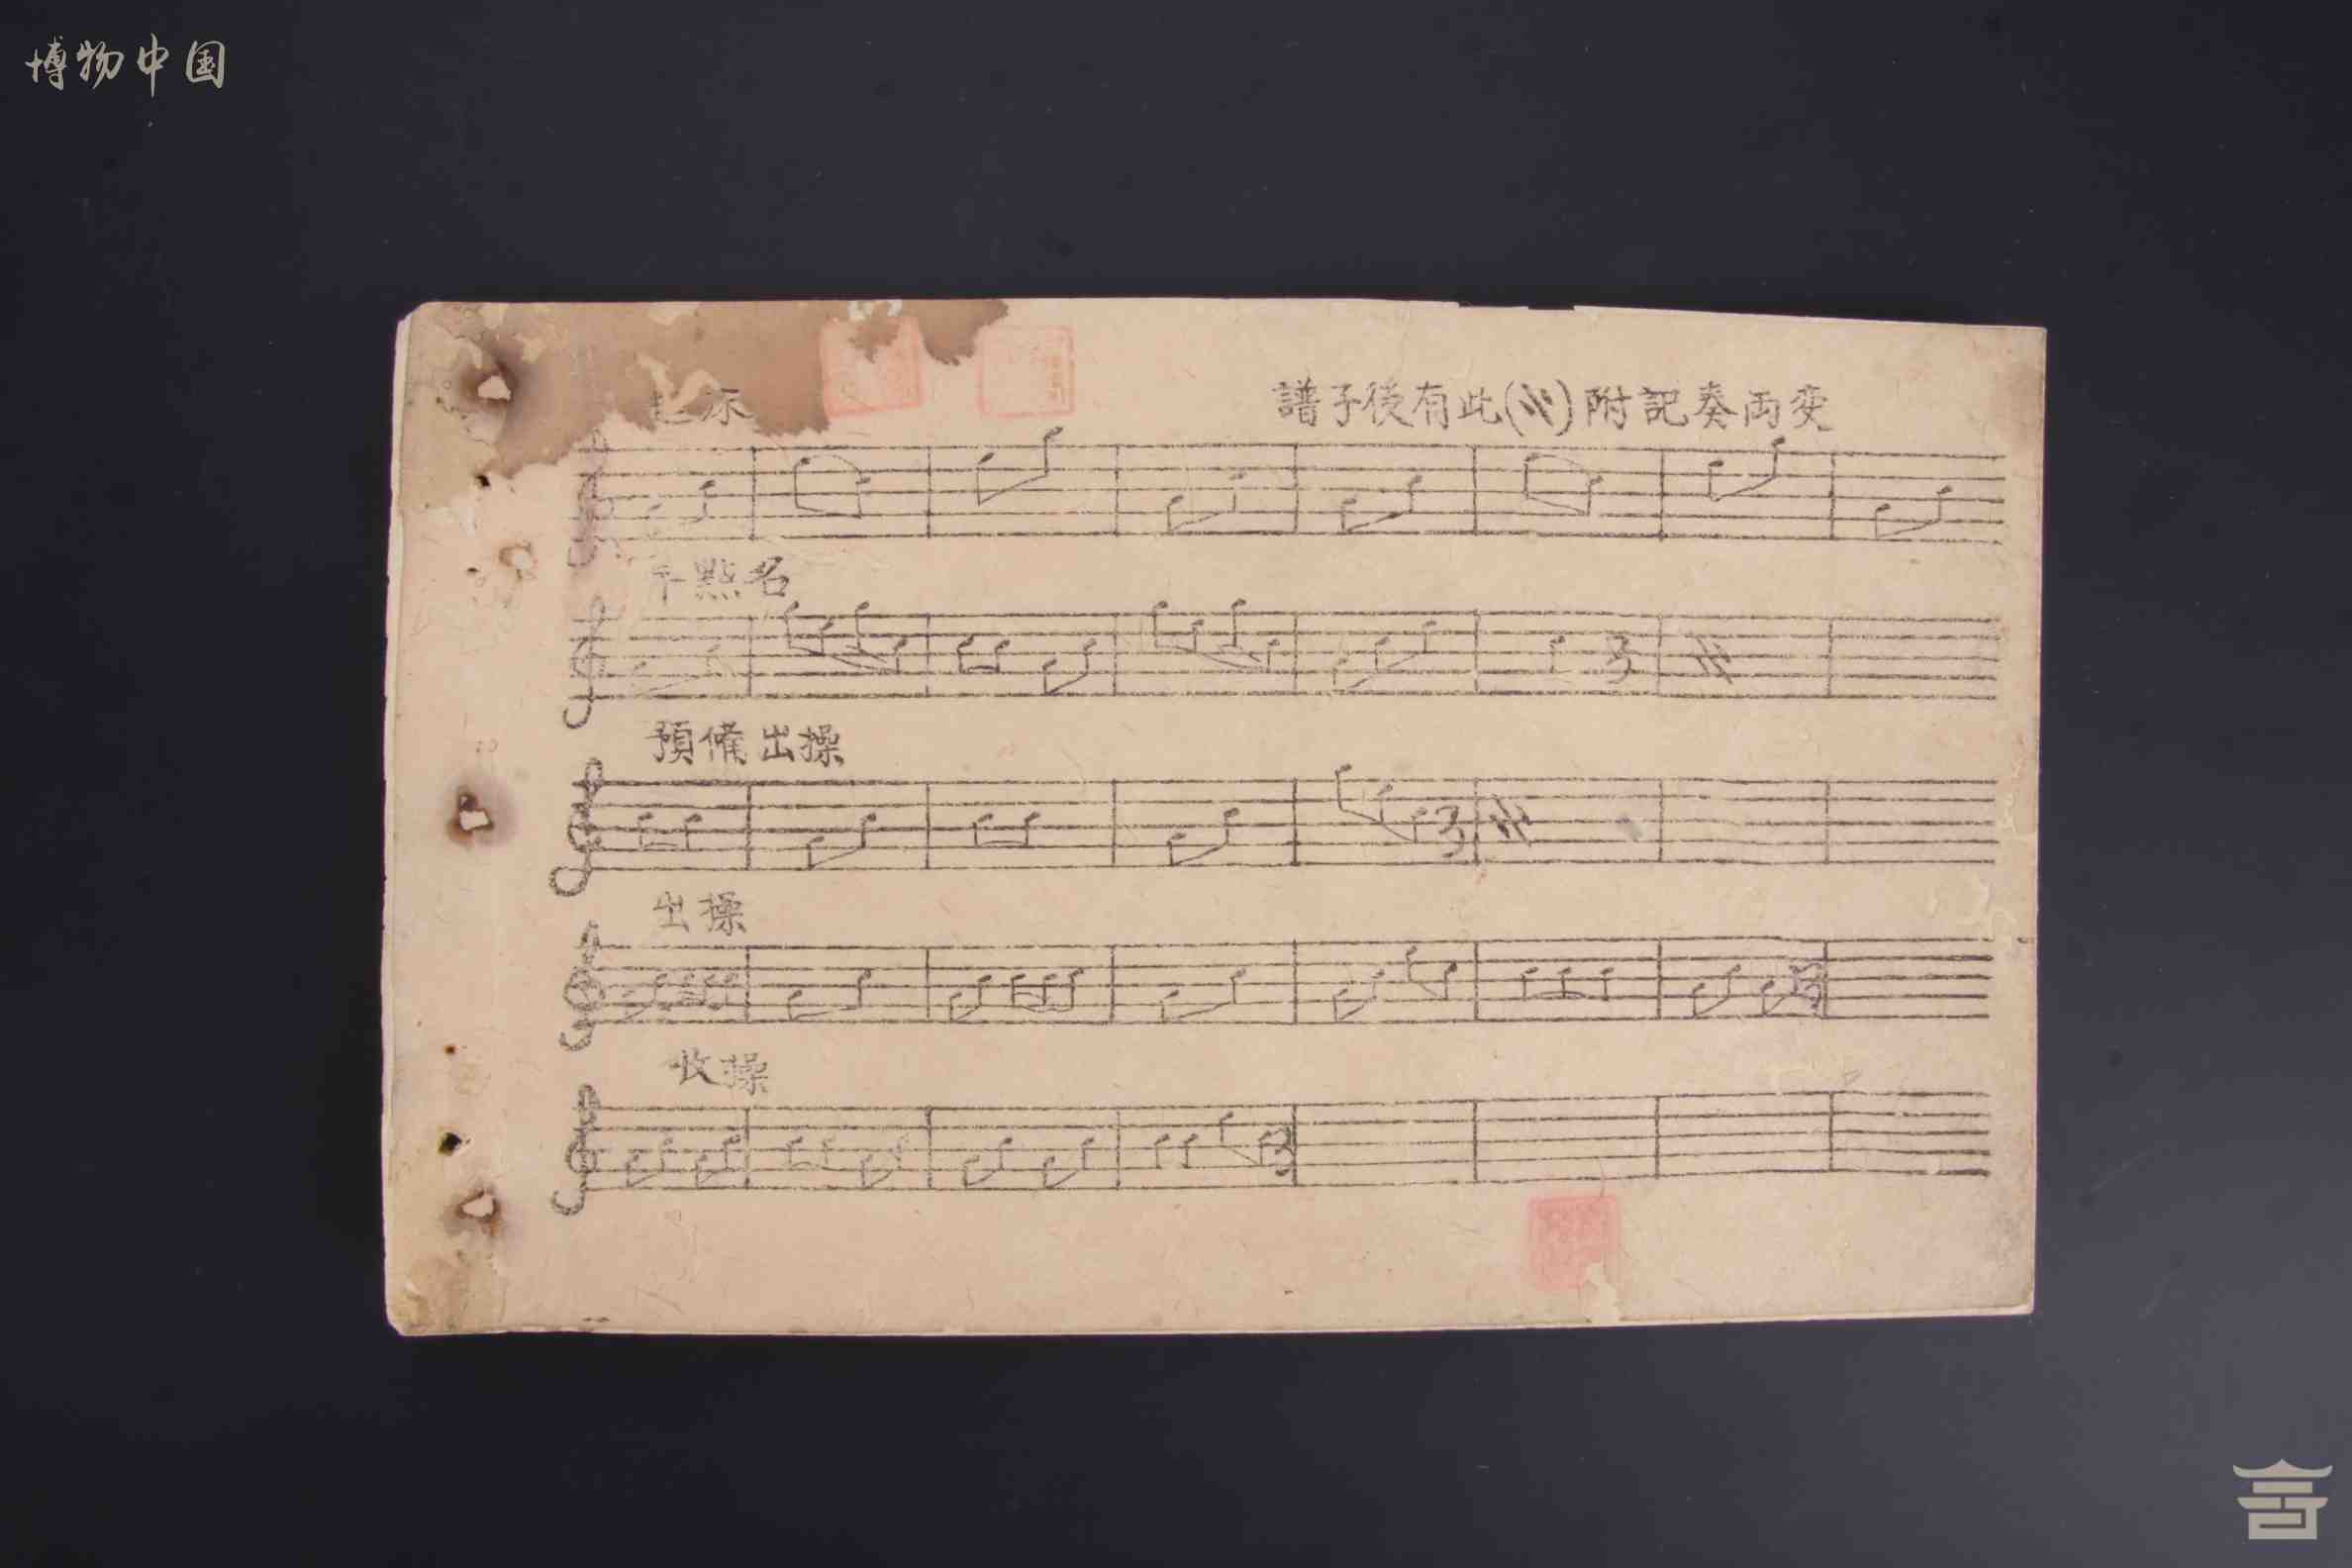 博物中国
起床
譜子後有此(〃)附記奏両变
午點名
預備出操
出操
收操